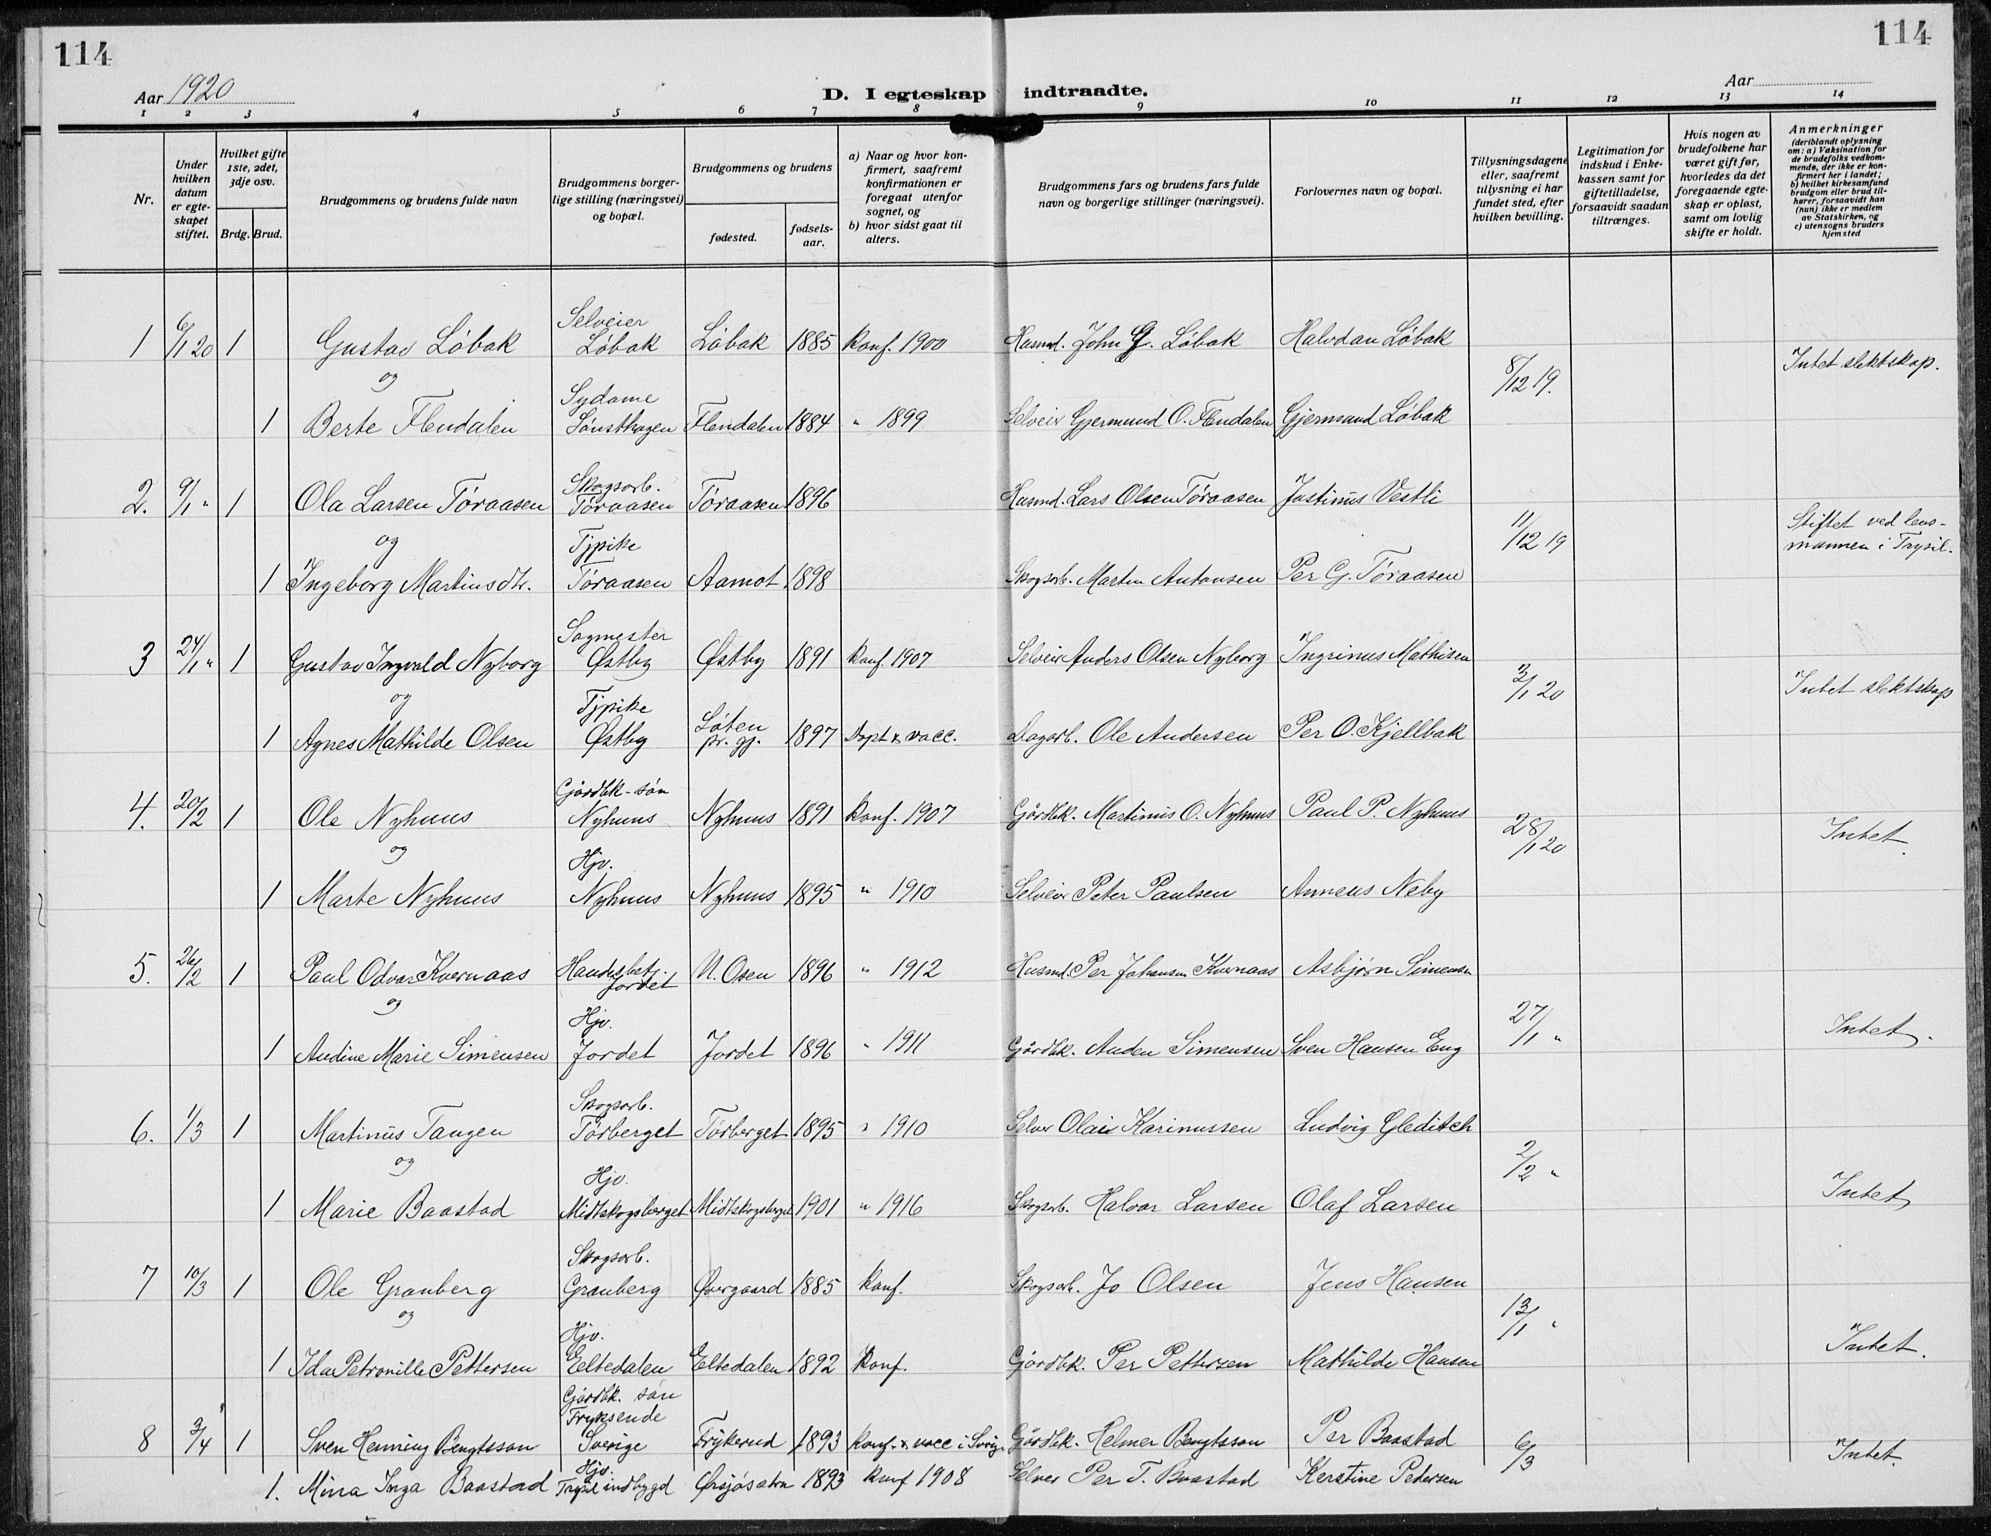 114
114
Aar 1920
D. I egteskap indtraadte.
Aar
1 2 3 4 5 6 7 8 9 10 11 12 13 14
Nr.
Under hvilken datum er egteskapet stiftet.
Hvilket gifte 1ste, 2det, 3dje osv.
Brdg. Brud.
Brudgommens og brudens fulde navn
Brudgommens borgerlige stilling (næringsvei) og bopæl.
Brudgommens og brudens
fødested.
fødselsaar.
a) Naar og hvor konfirmert, saafremt konfirmationen er foregaat utenfor sognet, og
b) hvor sidst gaat til alters.
Brudgommens fars og brudens fars fulde navn og borgerlige stillinger (næringsvei).
Forlovernes navn og bopæl.
Tillysningsdagene eller, saafremt tillysning ei har fundet sted, efter hvilken bevilling.
Legitimation for indskud i Enkekassen samt for giftetilladelse, forsaavidt saadun tiltrænges.
Hvis nogen av brudefolkene har været gift før, hvorledes da det foregaaende egteskap er opløst, samt om lovlig skifte er holdt.
Anmerkninger (deriblandt oplysning om: a) Vaksination for de brudefolks vedkommende, der ikke er konfirmert her i landet; b) hvilket kirkesamfund brudgom eller brud tilhører, forsaavidt han (hun) ikke er medlem av Statskirken, og c) utensogns bruders hjemsted
1 6/1 20 1 Gustav Löbak Selveier Löbak Löbak 1885 Konf. 1900 Husmd. John G. Löbak Halvdan Löbak
og 8/12 19. Intet slektskap.
1 Berte Flendalen Sydame Flendalen 1884 " 1899 Selveier Gjermund O. Flendalen Gjermund Löbak
2. 9/1 " 1 Ola Larsen Töraasen Skogsarb. Töraasen Töraasen 1896 Husmd. Lars Olsen Töraasen Justinus Vestli
og 11/12 19 Stiftet ved lensmannen i Trysil.
1 Ingeborg Martinsdtr. Tjpike Töraasen Aamot 1898 Skogsarb. Martin Antonsen Per G. Töraasen
3 24/1 " 1 Gustav Ingvald Nyborg Sagmester Østby Østby 1891 Konf. 1907 Selveier Anders Olsen Nyborg Ingrinus Mathisen
og 3/1 20 Intet slektskap
1 Agnes Mathilde Olsen Tjpike Østby Löten pr. gj. 1897 Døpt & vacc. Dagarb. Ole Andersen Per O. Kjellbak
4. 20/2 1 Ole Nyhuus Gårdbk-sön Nyhuus Nyhuus 1891 Konf. 1907 Gårdbk. Martinus O. Nyhuus Paul P. Nyhuus
og 28/1 20 Intet.
1 Marte Nyhuus Hjv. Nyhuus Nyhuus 1895 " 1910 Selveier Peter Paulsen Anneus Neby
5. 26/2 1 Paul Odvar Kvernaas Handelsbetj. Jordet N. Osen 1896 " 1912 Husmd. Per Johansen Kvernaas Asbjørn Simensen
og 27/1 " Intet.
1 Audine Marie Simensen Hjv. Jordet Jordet 1896 " 1911 Gårdbk. Auden Simensen Sven Hansen Eng
6. 1/3 1 Martinus Tangen Skogsarb. Törberget Törberget 1895 " 1910 Selveier Olai Karinussen Ludvig Gleditch
og 2/2 " Intet
1 Marie Baastad Hjv. Midtskogsberget Midtskogsberget 1901 " 1916 Skogsarb. Halvor Larsen Olaf Larsen
7 10/3 1 Ole Granberg Skogsarb. Granberg Øvergaard 1885 Konf. Skogsarb. Jo Olsen Jens Hansen
og 13/1 " Intet.
1 Ida Petronille Pettersen Hjv. Eltedalen Eltedalen 1892 Konf. Gårdbk. Per Pettersen Mathilde Hansen
8 3/4 1 Sven Henning Bengtsson Gårdbk. sön Fryksende Sverige Frykerud 1893 Konf. & vacc i Sverig. Gårdbk. Helmer Bengtsson Per Baastad
6/3 Intet.
1. Mina Inga Baastad Hjv. Trysil indbygd 1893 Konf 1908 Selveier Per T. Baastad Kerstine Pedersen